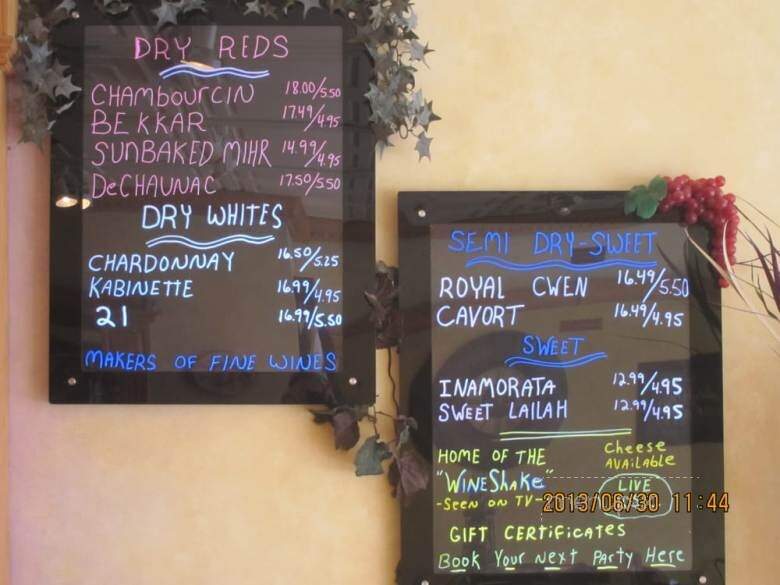 DRY REDS
CHAMbourCIN 18.00/5.50
BEKKAR 17.49/4.95
SUNBAKED MIHR 14.99/4.95
DeCHAUNAC 17.50/5.50
DRY WHITES
CHARDONNAY 16.50/5.25
KABINETTE 16.99/4.95
21 16.99/5.50
MAKERS OF FINE WINES
SEMI DRY-SWEET
ROYAL CWEN 16.49/5.50
CAVORT 16.49/4.95
SWEET
INAMORATA 12.99/4.95
SWEET LAILAH 12.99/4.95
HOME OF THE
"WINEShAke"
-SEEN ON TV-
Cheese
AVAilAble
LIVE
2013/06/30 11:44
GIFT CERTIFICATES
Book Your Next PArty Here